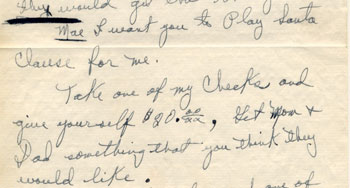 they would get the
Mae I want you to Play Santa
Clause for me.
Take one of my Checks and
give yourself $20.00/xx, Get Mom &
Dad something that you think they
would like.
one of